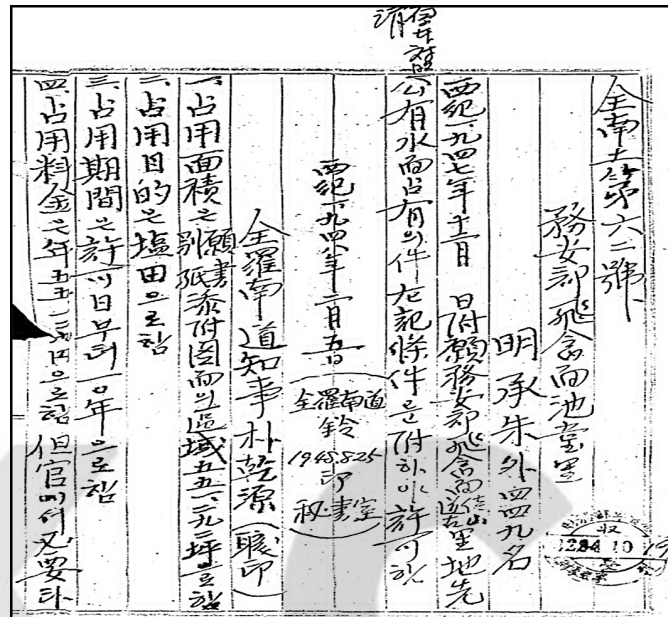 全南土第六二號
務安郡飛禽面池堂里
明承朱外四四九名
西紀一九四七年十二月 日附願務安郡飛禽面德山里地先
公有水面占有의件左記條件을附하야許可함
西紀一九四八年二月五日
全羅南道
鈴
1948.8.25
印
秘書室
全羅南道知事朴乾源(職印)
一、占用面積은願書別紙添附圖面의區域五五一、二九二坪으로함
二、占用目的은塩田으로함
三、占用期間은許可日부터一〇年으로함
四、占用料金은年
円으로함但官에서必要타
收
4284.10